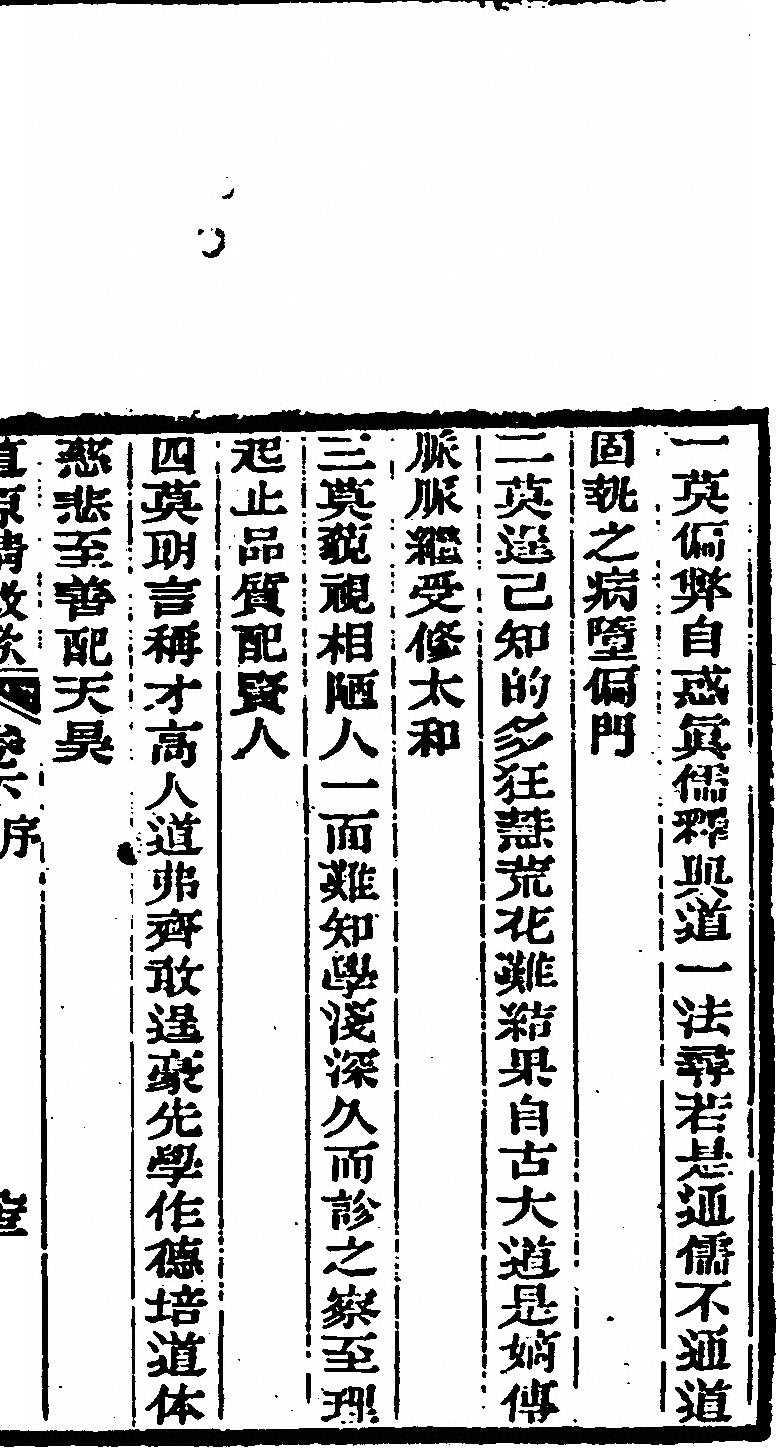 一莫偏弊自惑眞儒釋與道一法尋若是通儒不通道
固執之病墮偏門
二莫逞己知的多狂慧荒花難結果自古大道是嫡傳
脈脈繼受修太和
三莫藐視相陋人一面難知學淺深久而診之察至理
起止品質配賢人
四莫明言稱才高人道弗齊敢逞豪先學作德培道体
慈悲至善配天昊
序